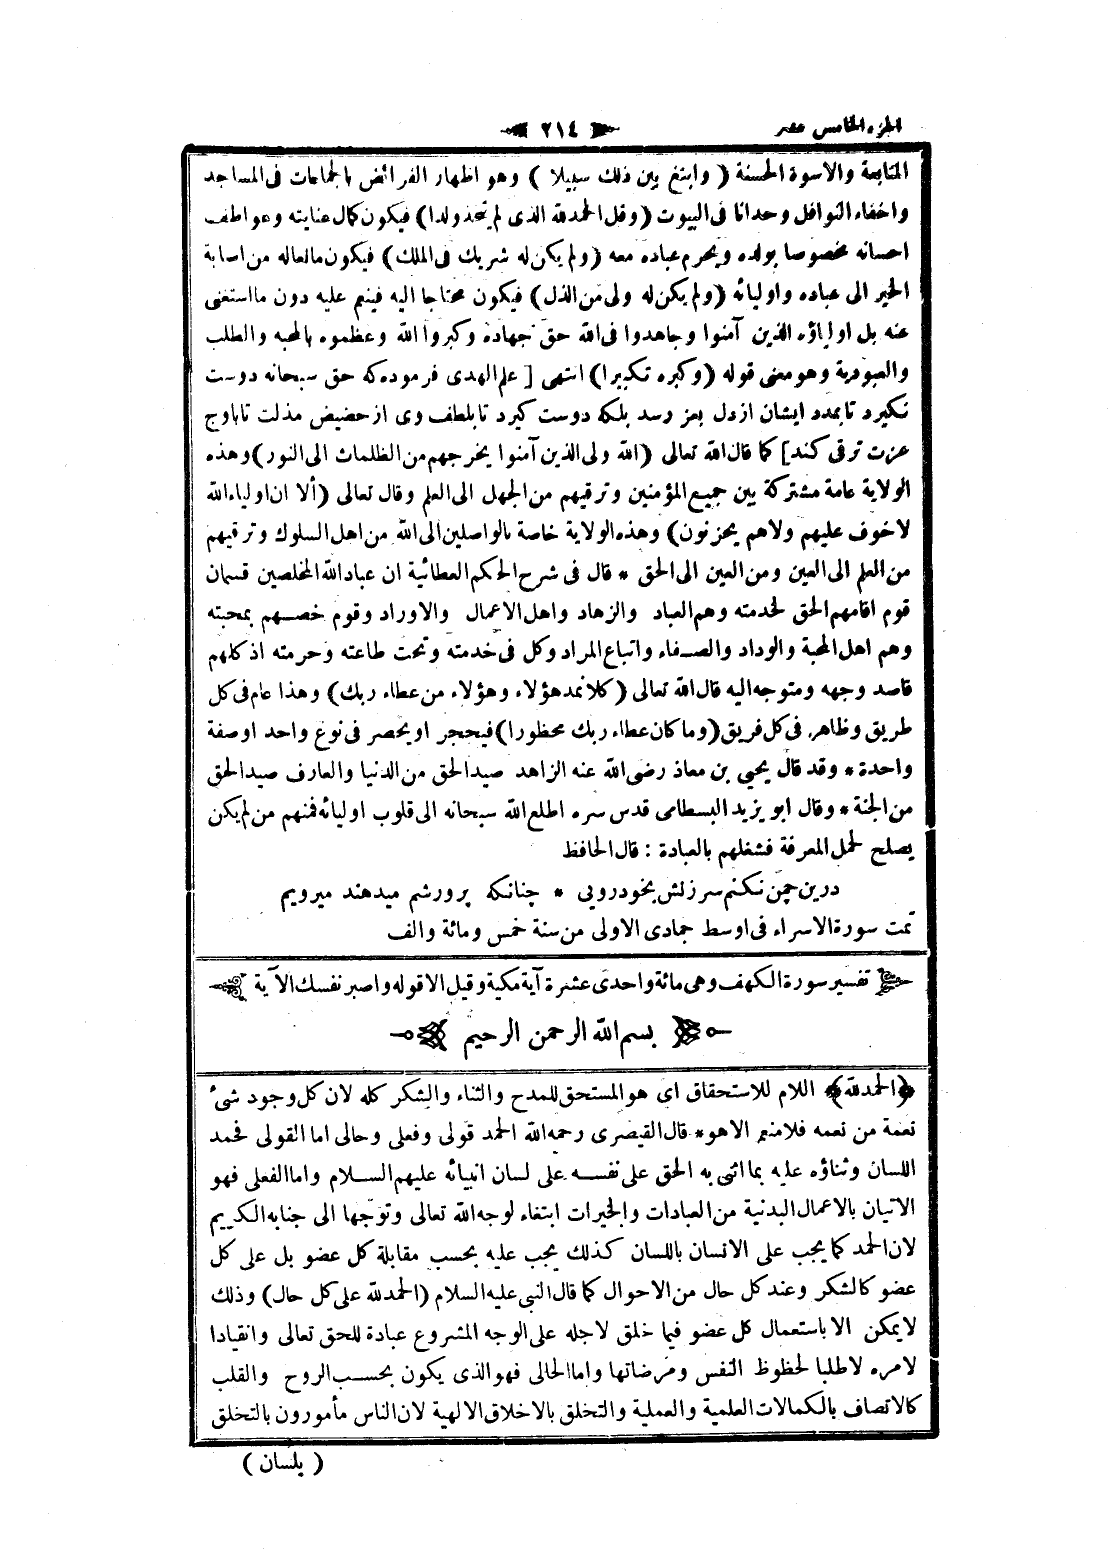 الجزء الخامس عشر
٢١٤
المتابعة والاسوة الحسنة ( وابتغ بين ذلك سبيلا ) وهو اظهار الفرائض بالجماعات فى المساجد
واخفاء النوافل وحدانا فى البيوت ( وقل الحمدلله الذى لم يتخذ ولدا ) فيكون كمال عنايته وعواطف
احسانه مخصوصا بولده ويحرم عباده معه ( ولم يكن له شريك فى الملك ) فيكون مانعاله من اصابة
الخير الى عباده واوليائه ( ولم يكن له ولى من الذل ) فيكون محتاجا اليه فينعم عليه دون ما استغنى
عنه بل اولياؤه الذين آمنوا وجاهدوا فى الله حق جهاده وكبروا الله وعظموه بالمحبه والطلب
والعبودية وهو معنى قوله ( وكبره تكبيرا ) انتهى [ علم الهدى فرموده كه حق سبحانه دوست
نكيرد تا بمدد ايشان ازذل بعز رسد بلكه دوست كيرد تابلطف وى از حضيض مذلت تاباوج
عزت ترقى كند] كما قال الله تعالى ( الله ولى الذين آمنوا يخرجهم من الظلمات الى النور ) وهذه
الولاية عامة مشتركة بين جميع المؤمنين وترقيهم من الجهل الى العلم وقال تعالى ( ألا ان اولياء الله
لا خوف عليهم ولاهم يحزنون ) وهذه الولاية خاصة بالواصلين الى الله من اهل السلوك وترقيهم
من العلم الى العين ومن العين الى الحق * قال فى شرح الحكم العطائية ان عباد الله المخلصين قسمان
قوم اقامهم الحق لخدمته وهم العباد والزهاد واهل الاعمال والاوراد وقوم خصهم بمحبته
وهم اهل المحبة والوداد والصفاء واتباع المراد وكل فى خدمته وتحت طاعته وحرمته اذ كلهم
قاصد وجهه ومتوجه اليه قال الله تعالى ( كلا نمد هؤلاء وهؤلاء من عطاء ربك ) وهذا عام فى كل
طريق وظاهر فى كل فريق ( وما كان عطاء ربك محظورا ) فيحجر او يحصر فى نوع واحد او صفة
واحدة * وقد قال يحيى بن معاذ رضى الله عنه الزاهد صيد الحق من الدنيا والعارف صيد الحق
من الجنة * وقال ابو يزيد البسطامى قدس سره اطلع الله سبحانه الى قلوب اوليائه فمنهم من لم يكن
يصلح لحمل المعرفة فشغلهم بالعبادة : قال الحافظ
درين چمن نكنم سرزنش بخودرويى * چنانكه پرورشم ميدهند ميرويم
تمت سورة الاسراء فى اوسط جمادى الاولى من سنة خمس ومائة والف
تفسير سورة الكهف وهى مائة واحدى عشرة آية مكية وقيل الا قوله واصبر نفسك الآية
بسم الله الرحمن الرحيم
﴿ الحمدلله ﴾ اللام للاستحقاق اى هو المستحق للمدح والثناء والشكر كله لان كل وجود شىء
نعمة من نعمه فلا منعم الا هو * قال القيصرى رحمه الله الحمد قولى وفعلى وحالى اما القولى فحمد
اللسان وثناؤه عليه بما اثنى به الحق على نفسه على لسان انبيائه عليهم السلام واما الفعلى فهو
الاتيان بالاعمال البدنية من العبادات والخيرات ابتغاء لوجه الله تعالى وتوجها الى جنابه الكريم
لان الحمد كما يجب على الانسان باللسان كذلك يجب عليه بحسب مقابلة كل عضو بل على كل
عضو كالشكر وعند كل حال من الاحوال كما قال النبى عليه السلام ( الحمدلله على كل حال ) وذلك
لا يمكن الا باستعمال كل عضو فيما خلق لاجله على الوجه المشروع عبادة للحق تعالى وانقيادا
لامره لا طلبا لحظوظ النفس ومرضاتها واما الحالى فهو الذى يكون بحسب الروح والقلب
كالاتصاف بالكمالات العلمية والعملية والتخلق بالاخلاق الالهية لان الناس مأمورون بالتخلق
( بلسان )